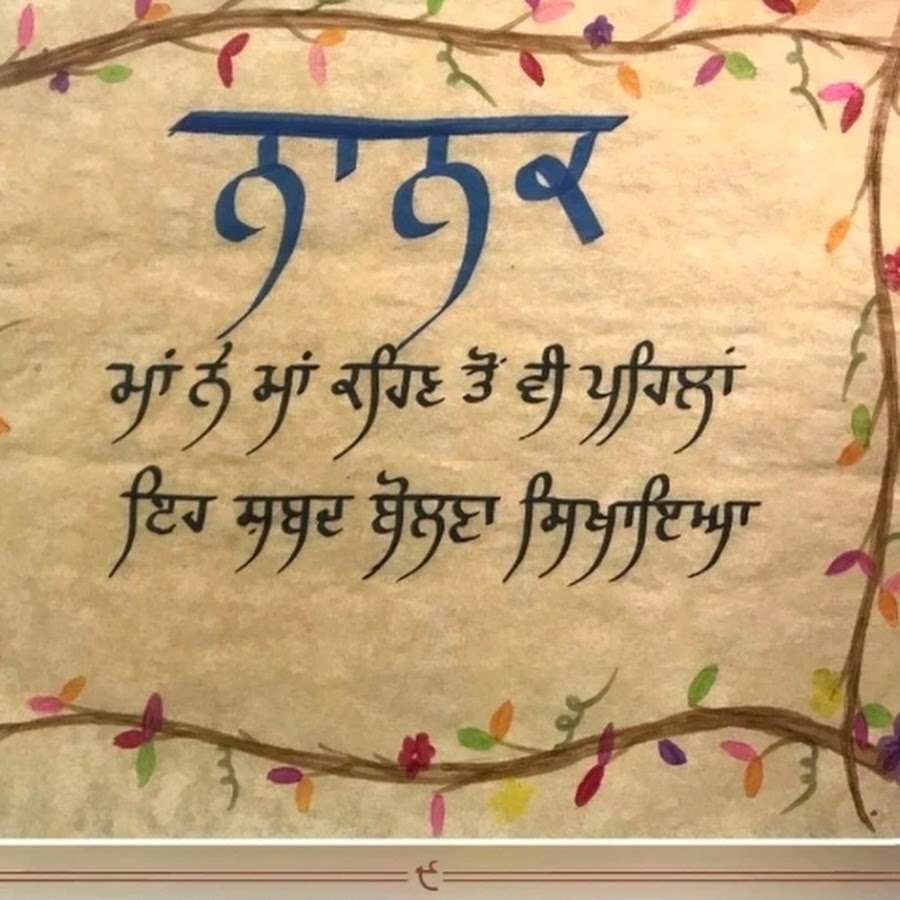 ਨਾਨਕ
ਮਾਂ ਨੇ ਮਾਂ ਕਹਿਣ ਤੋਂ ਵੀ ਪਹਿਲਾਂ
ਇਹ ਸ਼ਬਦ ਬੋਲਣਾ ਸਿਖਾਇਆ
੯